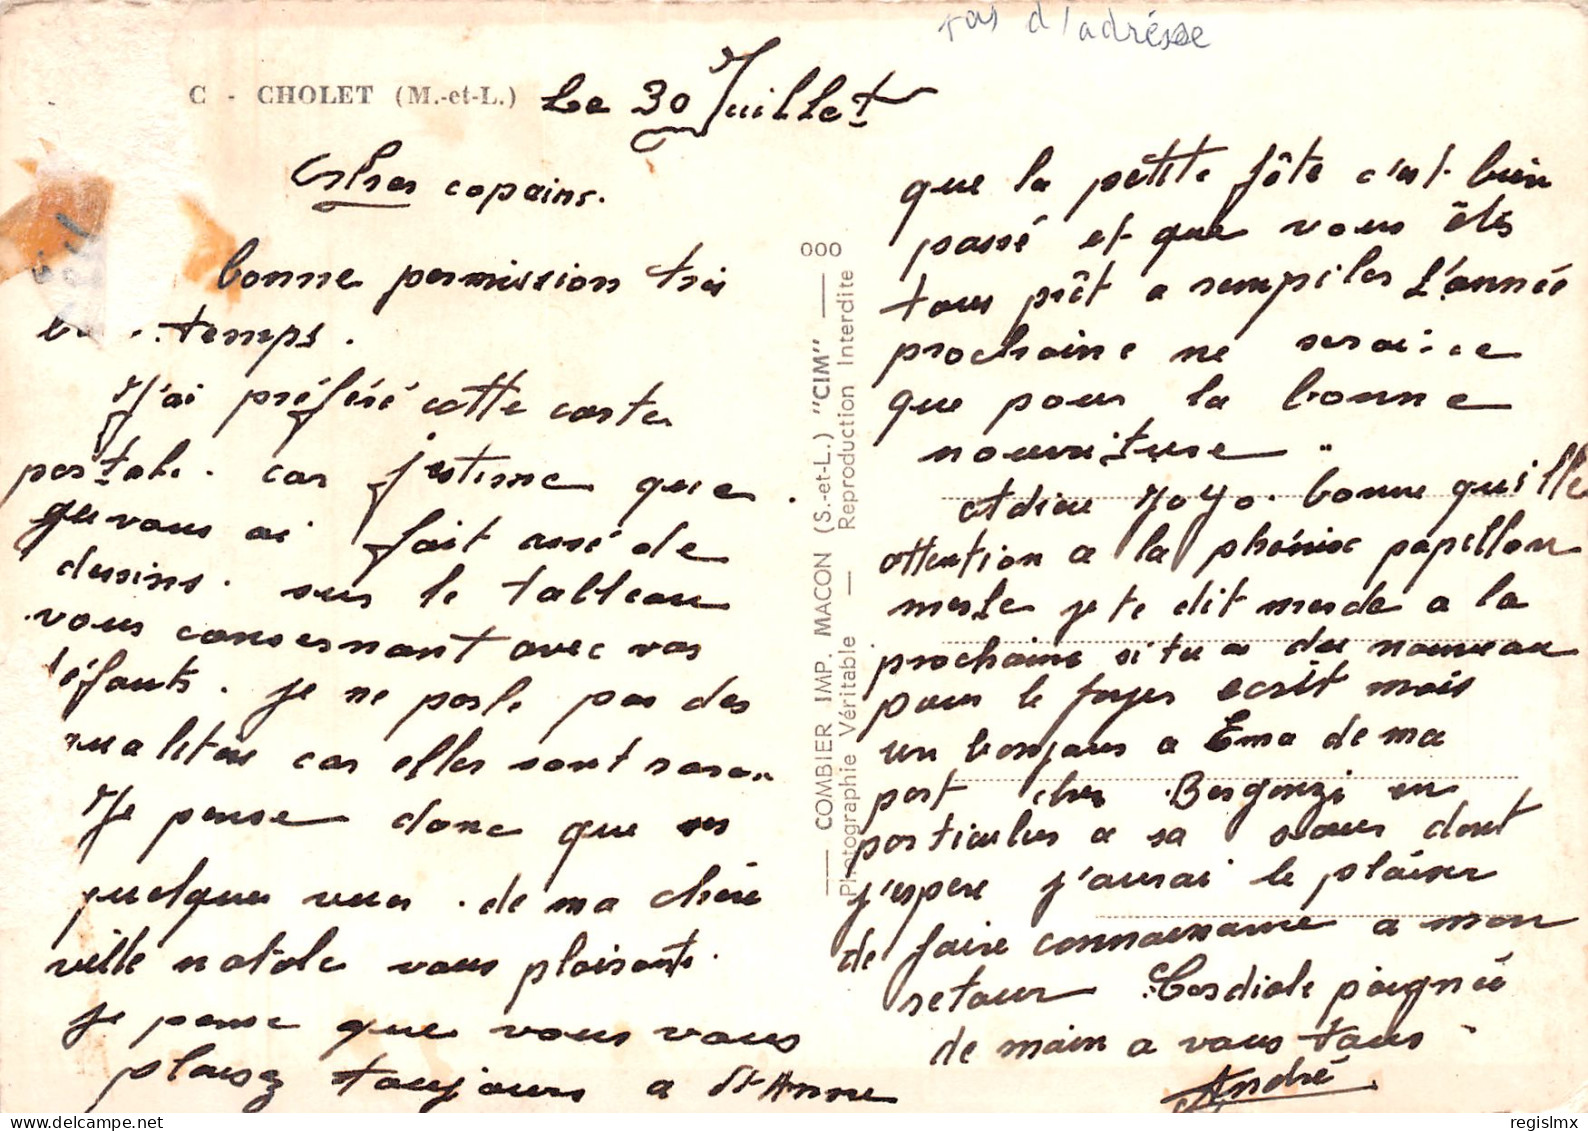 pas d'adrésse
C - CHOLET (M.-et-L.)
Le 30 Juillet
Chers copains.
bonne permission très
temps.
J'ai préféré cette carte
postale. car j'estime que
vous ai fait assé de
dessins. sur le tableau
vous consernant avec vos
défauts. je ne parle pas des
qualités car elles sont rares
Je pense donc que ses
quelques vues. de ma chère
ville natale vous plaisante.
je pense que vous vous
plaisez toujours a St Anne
que la petite fête c'est bien
passé et que vous êtes
tous prêt a rempiler L'année
prochaine ne serai-ce
que pour la bonne
nourriture"
adieu JoJo. bonne quille
attention a la phénix papillon
merle je te dit merde a la
prochaine si tu a du nouveau
pour le foyer ecrit mois
un bonjour a Ema de ma
part cher Bergonzi en
particulier a sa soeur dont
j'espere j'aurai le plaisir
de faire connaissance a mon
retour Cordiale poignée
de main a vous tous
André
000
COMBIER IMP. MACON (S.-et-L.) "CIM"
Photographie Véritable — Reproduction Interdite
regislmx